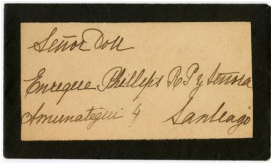 Señor Don
Enrique Phillips R P y Señora
Amunategui 4 Santiago